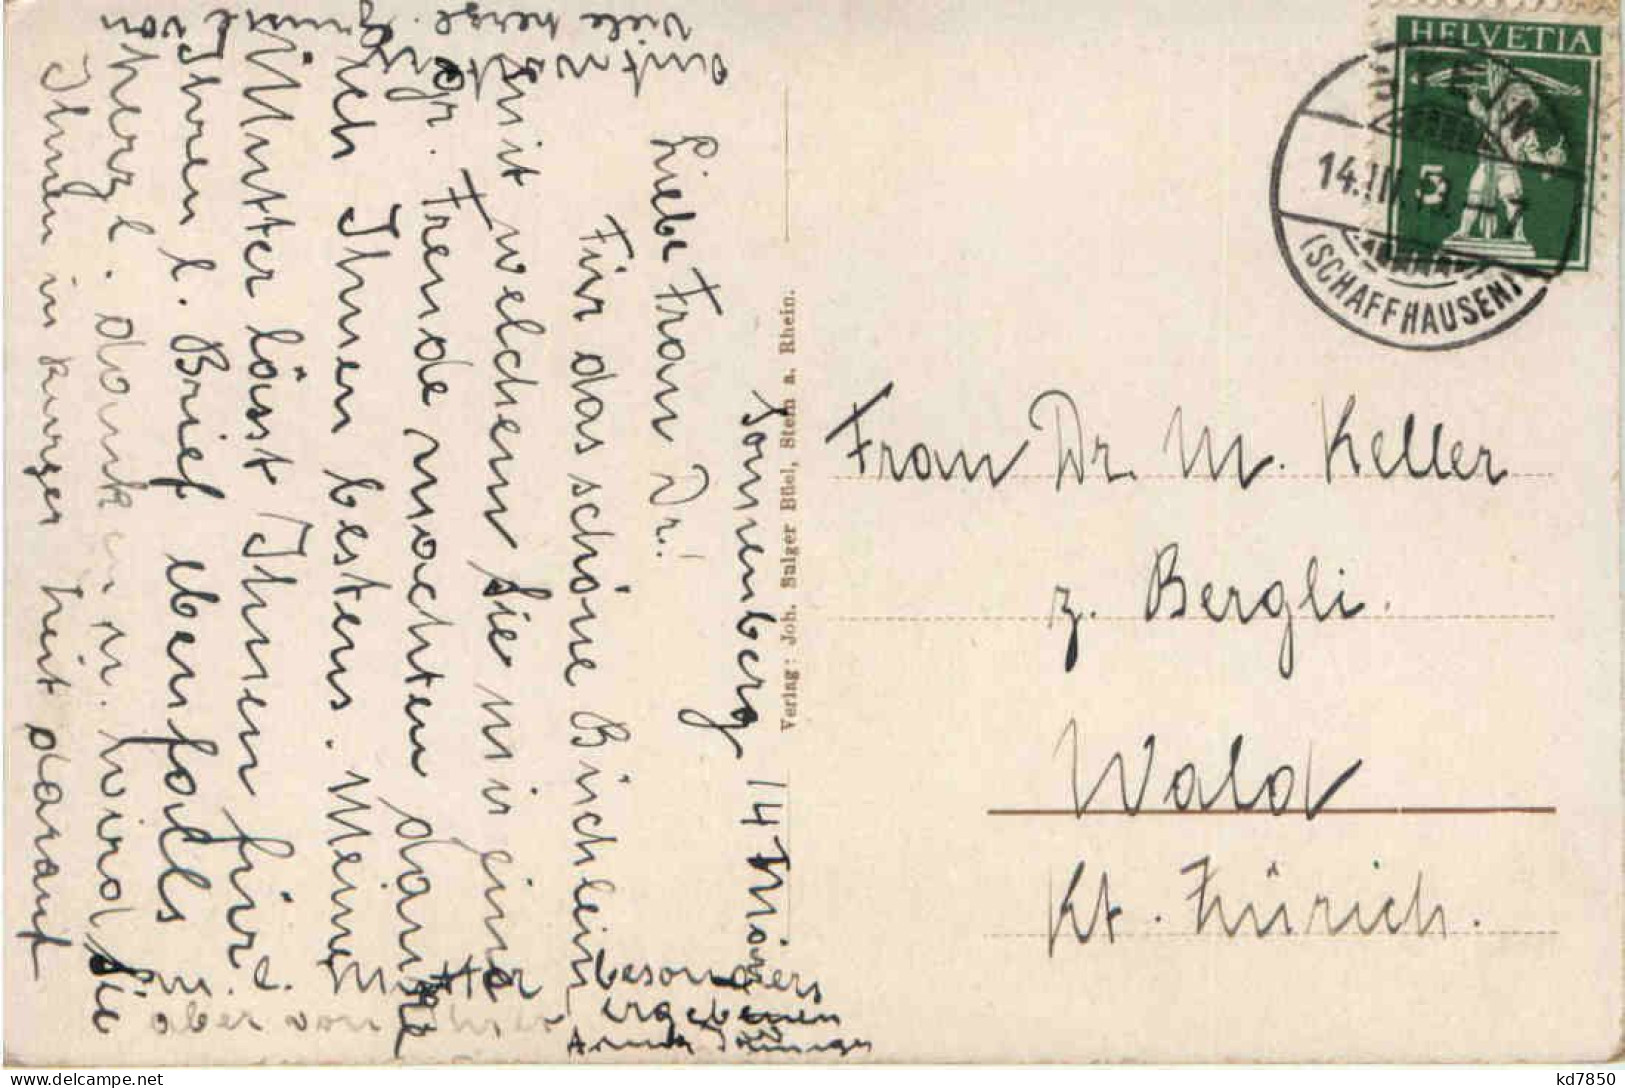 HELVETIA
5
STEIN
14.III.19.–7
(SCHAFFHAUSEN)
Verlag: Joh. Sulger Büel, Stein a. Rhein.
Frau Dr. M. Keller
z. Bergli.
Wald
Kt. Zürich.
Sonnenberg 14 März
Liebe Frau Dr.!
Für das schöne Büchlein
mit welchem Sie mir eine
gr. Freude machten danke
ich Ihnen bestens. Meine
Mutter lässt Ihnen für
Ihren l. Brief ebenfalls
herzl. danken u. wird Sie
Ihnen in kurzer Zeit darauf
antworten.
Viele herzl. Grüsse von
m. l. Mutter
aber von Ihrer
besonders
ergebenen